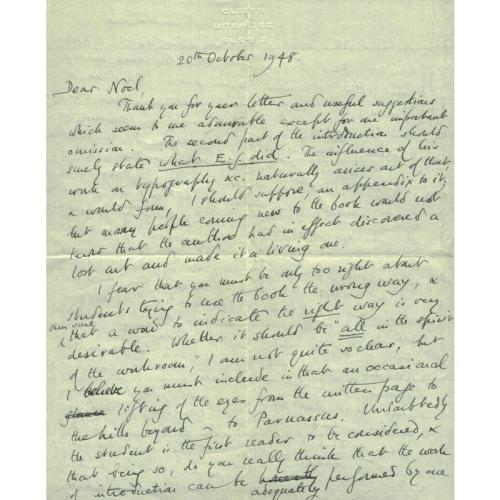 DITCHLING
20th October 1948.
Dear Noel,
Thank you for your letter and useful suggestions
which seem to me admirable except for one important
omission. The second part of the introduction should
surely state what E.J. did. The influence of his
work on typography &c. naturally arises out of that
& would form, I should suppose, an appendix to it;
but many people coming new to the book would not
know that the author had in effect discovered a
lost art and made it a living one.
I fear that you must be only too right about
students trying to use the book the wrong way, &
I am sure that a word to indicate the right way is very
desirable. Whether it should be "all in the spirit
of the workroom," I am not quite so clear, but
I believe you must include in that an occasional
glance lifting of the eyes from the written page to
the hills beyond – to Parnassus. Undoubtedly
the student is the first reader to be considered, &
that being so, do you really think that the work
of introduction can be adequately performed by one